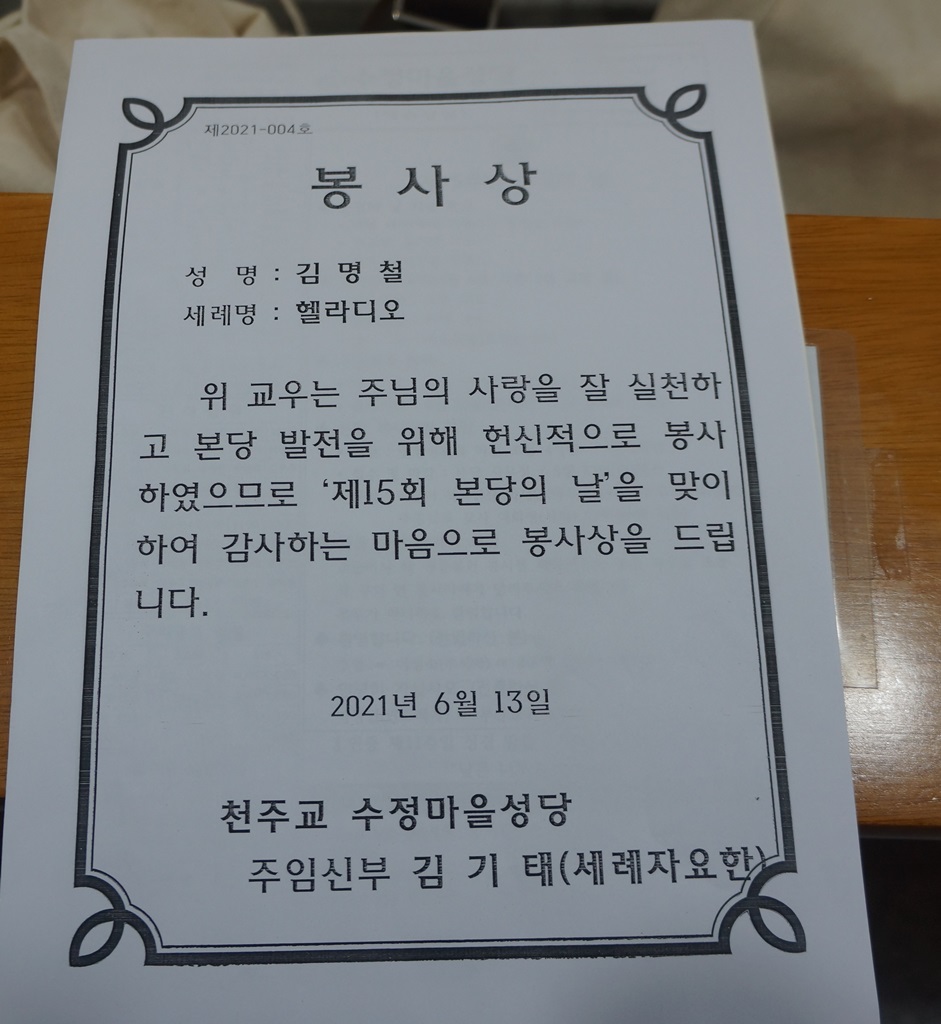 제2021-004호
봉 사 상
성 명 : 김 명 철
세례명 : 헬라디오
위 교우는 주님의 사랑을 잘 실천하
고 본당 발전을 위해 헌신적으로 봉사
하였으므로 ‘제15회 본당의 날’을 맞이
하여 감사하는 마음으로 봉사상을 드립
니다.
2021년 6월 13일
천주교 수정마을성당
주임신부 김 기 태(세례자요한)